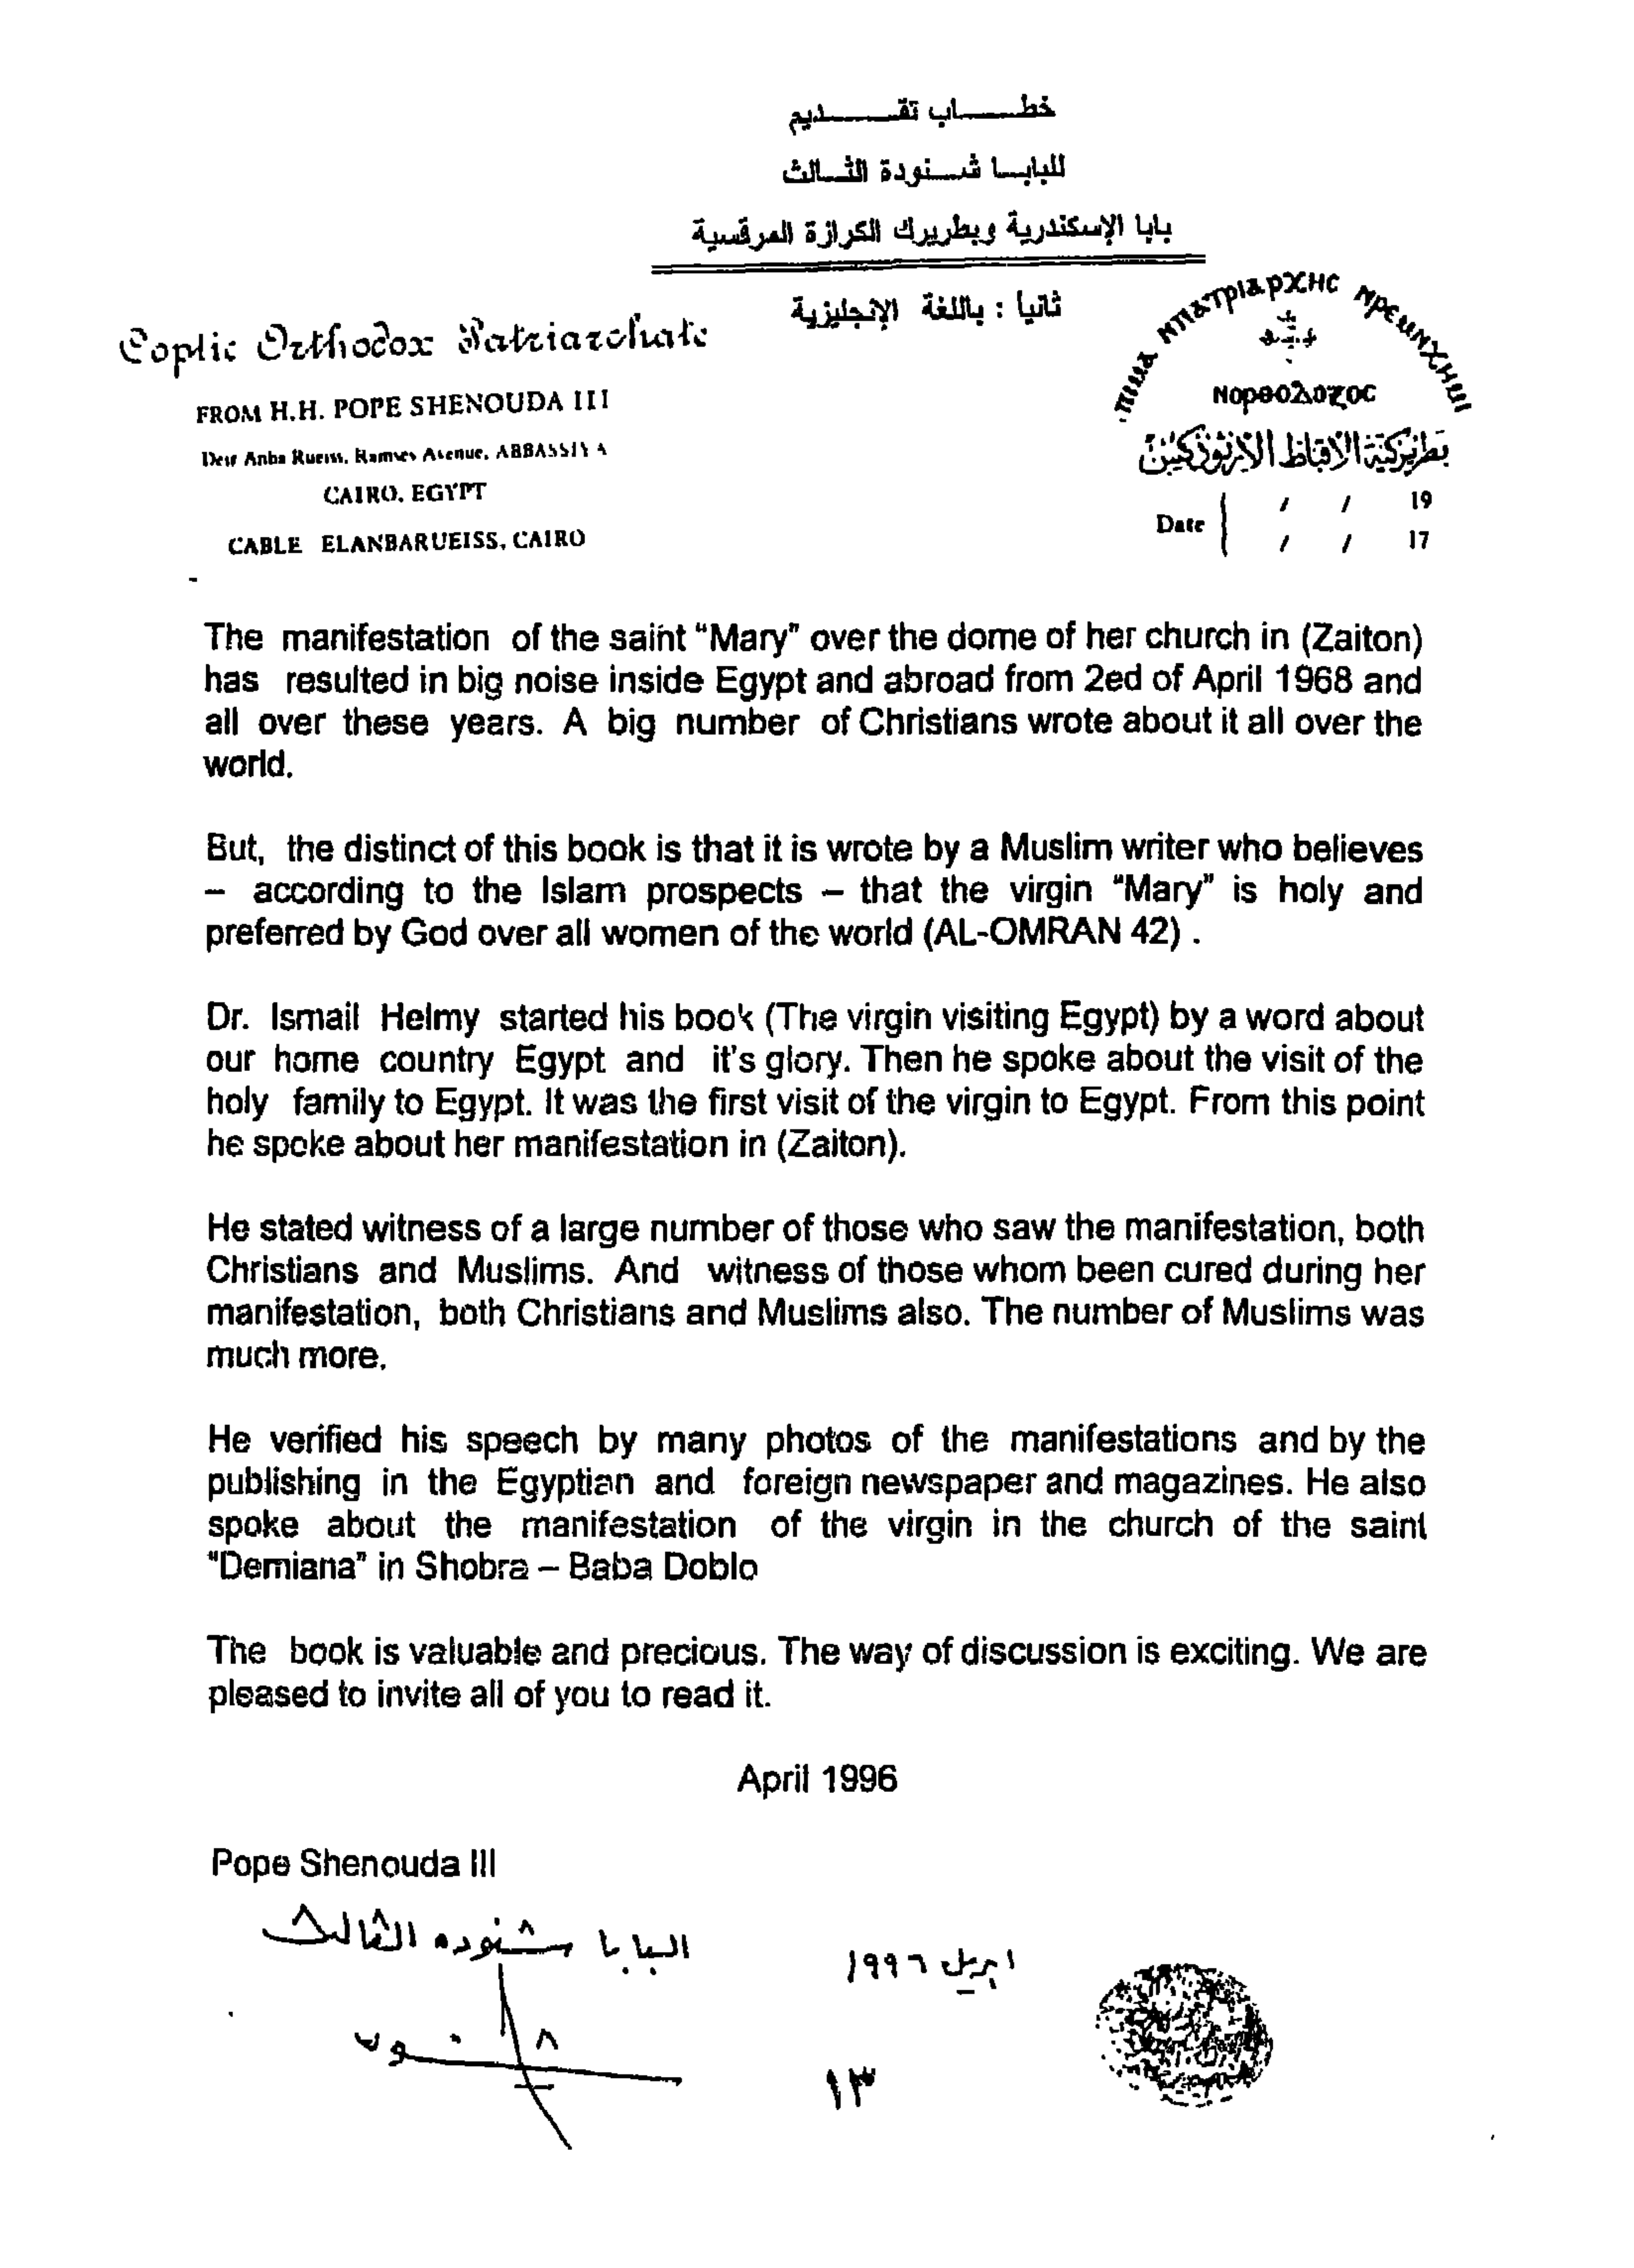 خطاب تقديم
للبابا شنودة الثالث
بابا الإسكندرية وبطريرك الكرازة المرقسية
ثانيا : باللغة الإنجليزية
Coptic Orthodox Patriarchate
FROM H.H. POPE SHENOUDA III
Deir Anba Rueiss, Ramses Avenue, ABBASSIYA
CAIRO, EGYPT
CABLE ELANBARUEISS, CAIRO
ⲙⲡⲁⲧⲣⲓⲁⲣⲭⲏⲥ ⲛⲣⲉⲙⲛⲭⲏⲙⲓ
ⲛⲟⲣⲑⲟⲇⲟⲝⲟⲥ
بطريركية الاقباط الارثوذكسيين
Date / / 19
/ / 17
The manifestation of the saint “Mary” over the dome of her church in (Zaiton)
has resulted in big noise inside Egypt and abroad from 2ed of April 1968 and
all over these years. A big number of Christians wrote about it all over the
world.
But, the distinct of this book is that it is wrote by a Muslim writer who believes
– according to the Islam prospects – that the virgin “Mary” is holy and
preferred by God over all women of the world (AL-OMRAN 42) .
Dr. Ismail Helmy started his book (The virgin visiting Egypt) by a word about
our home country Egypt and it's glory. Then he spoke about the visit of the
holy family to Egypt. It was the first visit of the virgin to Egypt. From this point
he spoke about her manifestation in (Zaiton).
He stated witness of a large number of those who saw the manifestation, both
Christians and Muslims. And witness of those whom been cured during her
manifestation, both Christians and Muslims also. The number of Muslims was
much more.
He verified his speech by many photos of the manifestations and by the
publishing in the Egyptian and foreign newspaper and magazines. He also
spoke about the manifestation of the virgin in the church of the saint
“Demiana” in Shobra – Baba Doblo
The book is valuable and precious. The way of discussion is exciting. We are
pleased to invite all of you to read it.
April 1996
Pope Shenouda III
البابا شنوده الثالث
ابريل ١٩٩٦
١٣